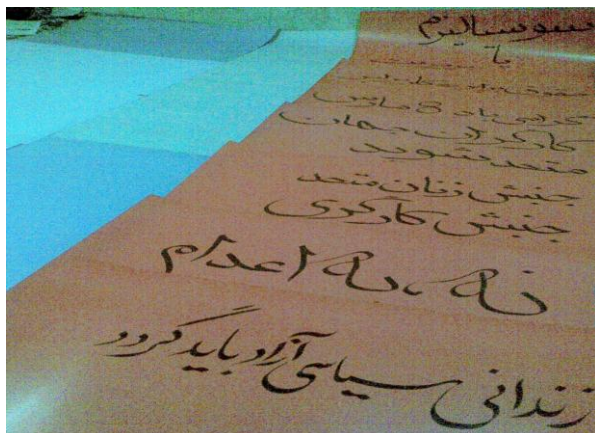 سوسیالیزم
یا
گرامی باد 8 مارس
کارگران جهان
متحد شوید
جنبش زنان متحد
جنبش کارگری
نه ، نه اعدام
زندانی سیاسی آزاد باید گردد